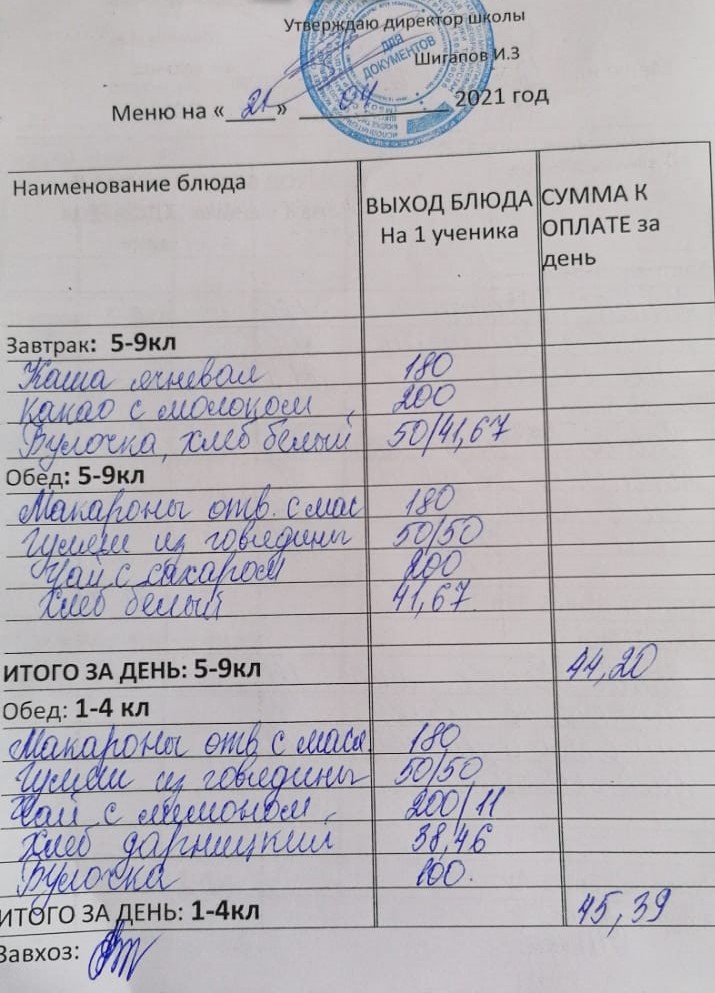 Утверждаю директор школы
ДЛЯ ДОКУМЕНТОВ
Шигапов И.З
Меню на « 21 » 04 2021 год
Наименование блюда ВЫХОД БЛЮДА На 1 ученика СУММА К ОПЛАТЕ за день
Завтрак: 5-9кл
Каша ячневая 180
какао с молоком 200
Булочка, хлеб белый 50/41,67
Обед: 5-9кл
Макароны отв. с мас 180
Гуляш из говядины 50/50
Чай с сахаром 200
Хлеб белый 41,67
ИТОГО ЗА ДЕНЬ: 5-9кл 44,20
Обед: 1-4 кл
Макароны отв с масл. 180
Гуляш из говядины 50/50
Чай с лимоном 200/11
Хлеб дарницкий 38,46
Булочка 100.
ИТОГО ЗА ДЕНЬ: 1-4кл 45,39
Завхоз: